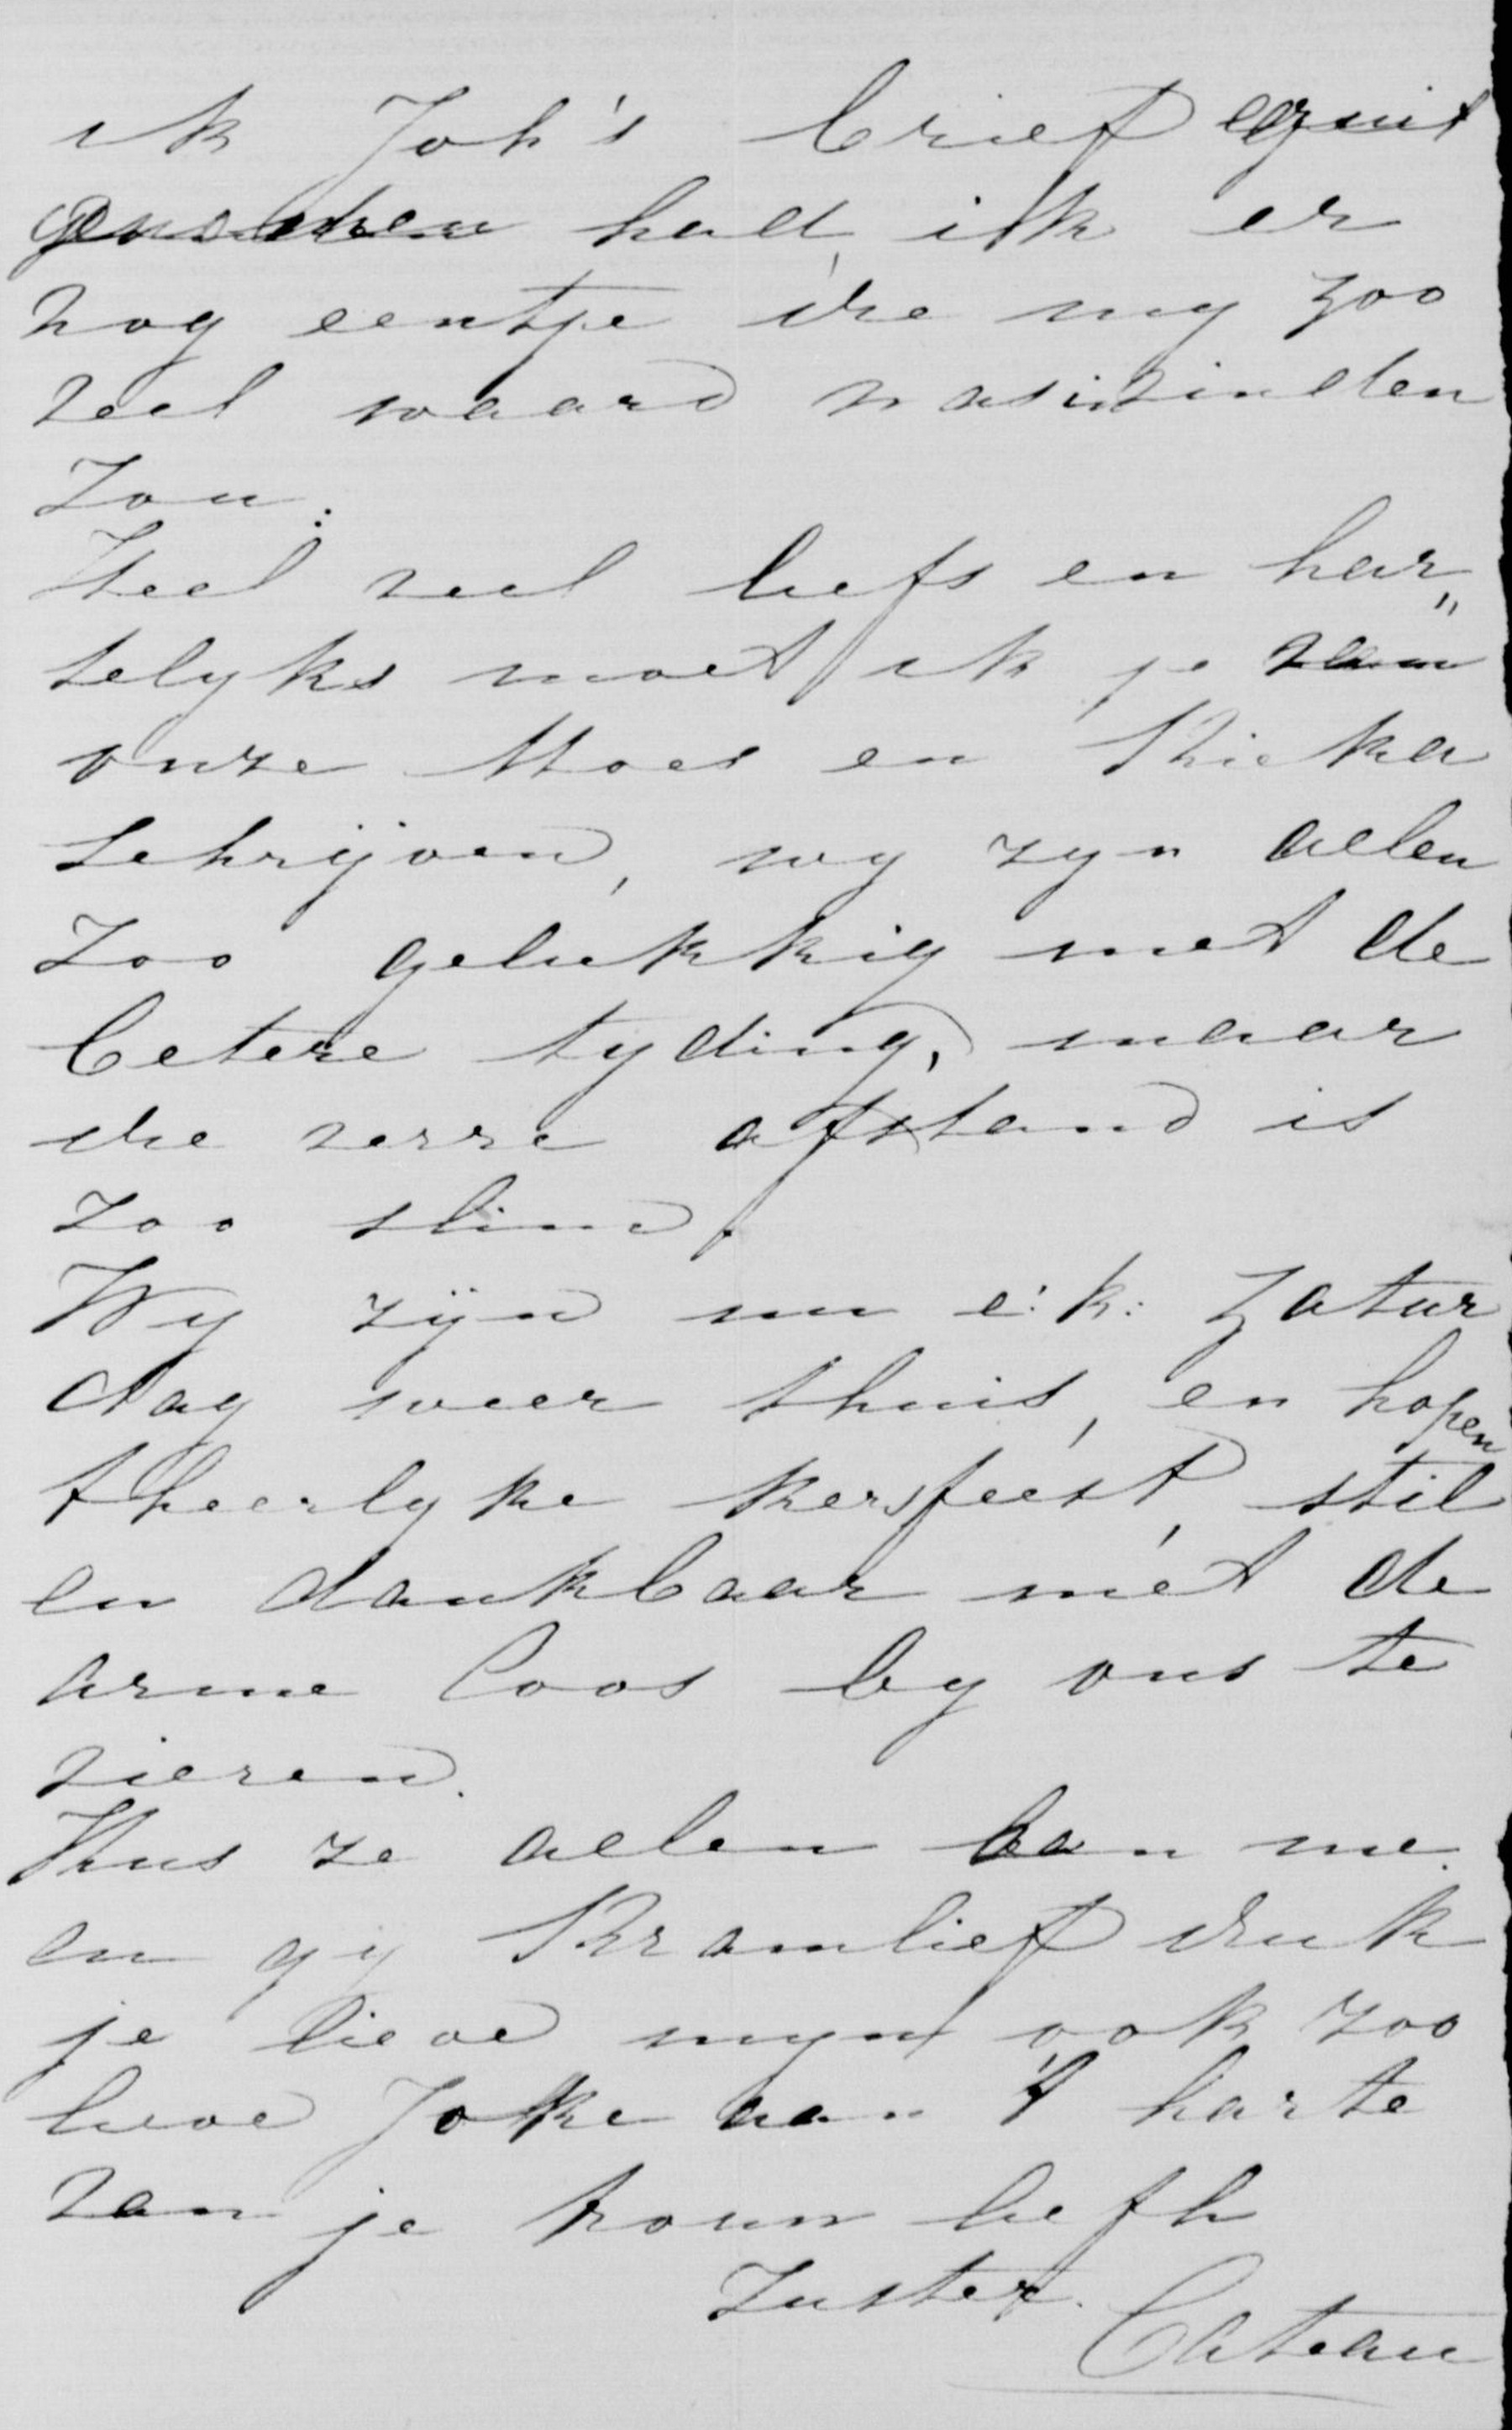 ik Joh's brief eruit
had, ik er
nog eentje die my zoo
veel waard was inzinden
zou:
Heel veel liefs en har„
telyks moet ik je van
onze Moes en Rieka
schrijven, wy zyn allen
zoo gelukkig met de
betere tyding, maar
die verre afstand is
zoo slim.
Wy zijn nu e:k: Zatur
dag weer thuis, en hopen
t heerlyke kersfeest, stil
en dankbaar mèt de
arme Coos by ons te
vieren.
Kus ze allen van me.
en gij Bramlief druk
je lieve myn ook zoo
lieve Joke aan 't harte
van je trouw liefh
Zuster.
Cateau